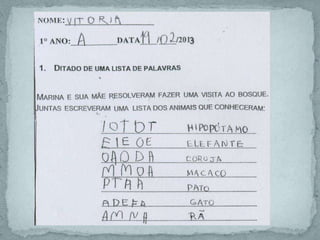 NOME: VITORIA
1º ANO: A DATA 19/02/2013
1. DITADO DE UMA LISTA DE PALAVRAS
MARINA E SUA MÃE RESOLVERAM FAZER UMA VISITA AO BOSQUE.
JUNTAS ESCREVERAM UMA LISTA DOS ANIMAIS QUE CONHECERAM:
IOTDT HIPOPÓTAMO
EIEOE ELEFANTE
OAODA CORUJA
MMOA MACACO
PTAA PATO
ADEFA GATO
AMNA RÃ